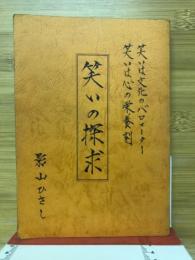 笑いは文化のバロメーター
笑いは心の栄養剤
笑いの探求
影山ひさし